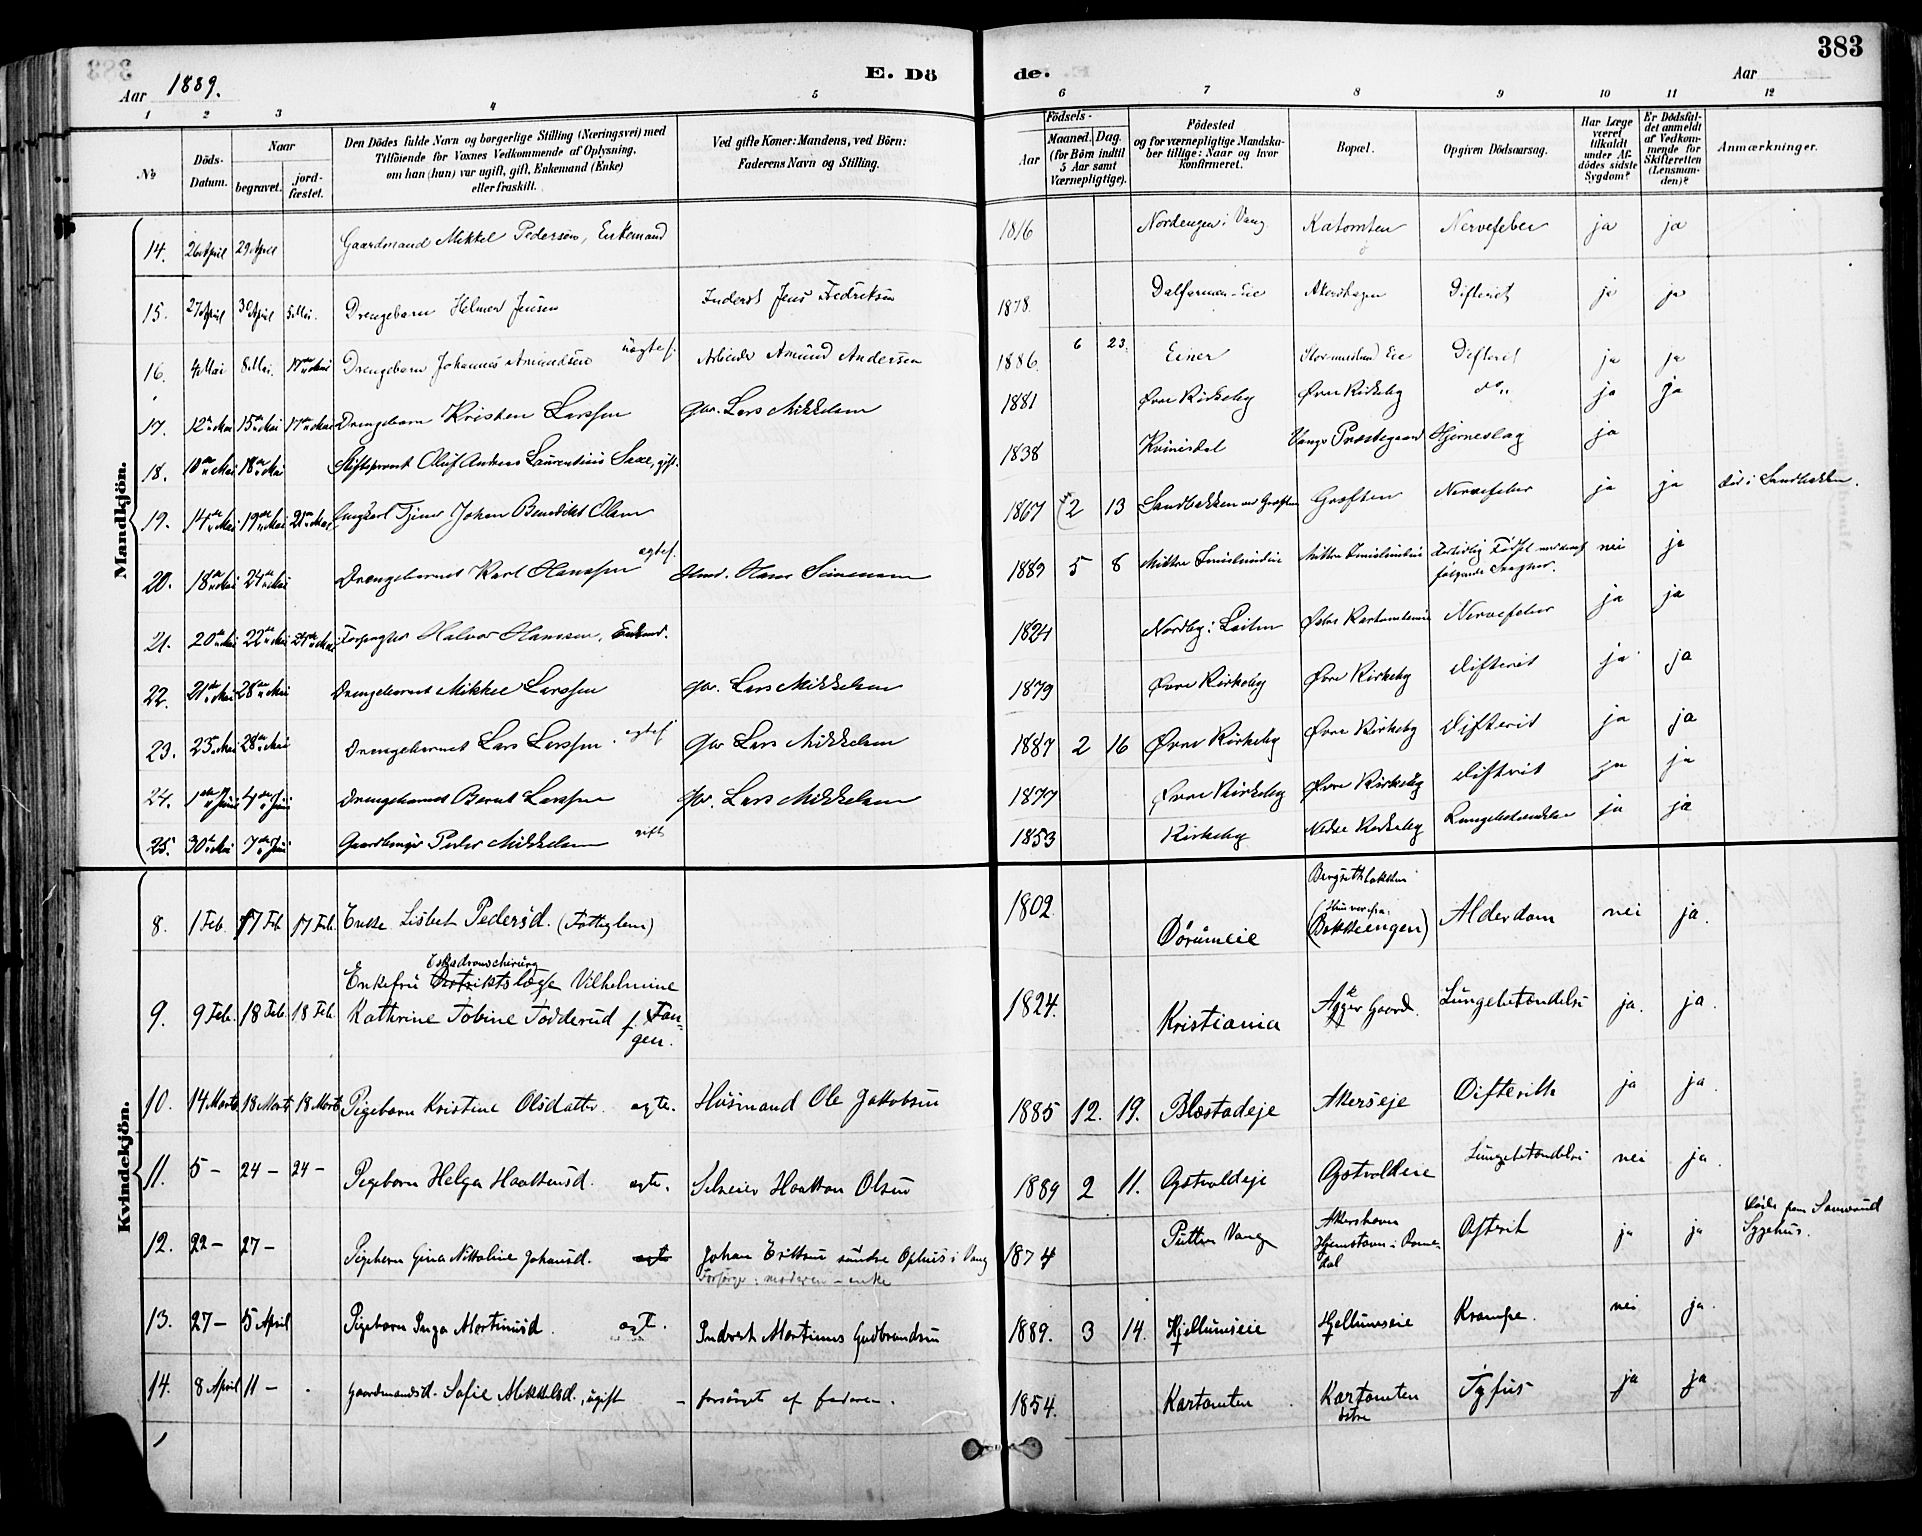 383
Aar 1889.
E. Dö
de.
Aar
1 2 3 4 5 6 7 8 9 10 11 12
No
Döds-Datum.
Naar
begravet.
jord-fæstet.
Den Dödes fulde Navn og borgerlige Stilling (Næringsvei) med
Tilföiende for Voxnes Vedkommende af Oplysning,
om han (hun) var ugift, gift, Enkemand (Enke)
eller fraskilt.
Ved gifte Koner: Mandens, ved Börn:
Faderens Navn og Stilling.
Födsels-
Aar
Maaned. Dag.
(for Börn indtil
5 Aar samt
Værnepligtige).
Födested
og for værnepligtige Mandska-
ber tillige: Naar og hvor
konfirmeret.
Bopæl.
Opgiven Dödsaarsag.
Har Læge
været
tilkaldt
under Af-
dödes sidste
Sygdom?
Er Dödsfal-
det anmeldt
af Vedkom-
mende for
Skifteretten
(Lensman-
den)?
Anmærkninger.
Mandkjön.
14. 26 April 29 April Gaardmand Mikkel Pedersen, Enkemand 1816 Nordengen i Vang Katomten Nervefeber ja ja
15. 27 April 30 April 5 Mai. Drengebarn Helmer Jensen Inderst Jens Fredriksen 1878. Eie Akershagen Difterit ja ja
16. 4 Mai 8 Mai. 17de Mai Drengebarn Johannes Amundsen uægtef. Arbeider Amund Andersen 1886. 6 23. Einer Eie Difterit ja ja
17. 12te Mai 15de Mai 17de Mai Drengebarn Kristen Larssen Gbr. Lars Mikkelsen 1881 Övre Kirkeby Övre Kirkeby do,, ja ja
18. 10de Mai 18de Mai Stiftsprovst Oluf Andreas Laurentius Saxe, gift. 1838 Kvinisdal Vangs Præstegaard Hjerneslag ja
19. 14de Mai 19de Mai 21de Mai Ungkarl Tjener Johan Benedikt Olsen 1867 2 13 Sandbakken Grøften Nervefeber ja ja död i Sandbakken.
20. 18de Mai 24de Mai Drengebarnet Karl Hanssen ægtef. Hans Simensen 1889 5 8 Mittre Mittre Födsel nei ja
21. 20de Mai 22de Mai 24de Mai Halvor Hanssen, Enkemd. 1824 Nordby i Löiten Nervefeber ja ja
22. 21de Mai 28de Mai Drengebarnet Mikkel Larssen Gbr. Lars Mikkelsen 1879 Övre Kirkeby Övre Kirkeby Difterit ja ja
23. 25. Mai 28de Mai Drengebarnet Lars Larssen. ægtef Gbr Lars Mikkelsen 1887 2 16 Övre Kirkeby Övre Kirkeby Difterit ja ja
24. 1ste Juni 4de Juni Drengebarnet Bernt Larssen Gbr. Lars Mikkelsen 1877 Övre Kirkeby Övre Kirkeby Difterit ja ja
25. 30te Mai 7de Juni Gaardbruger Peder Mikkelsen gift 1853 Kirkeby Nedre Kirkeby Lungebetændelse ja ja
Kvindekjön.
8. 1 Feb. 17 Feb 17 Feb. Enke Lisbet Pedersd. (Fattiglem) 1802 Dörumeie Bergsethbakken (Hun var fra Bakkeengen) Alderdom nei ja.
9. 9 Feb. 18 Feb. 18 Feb. Enkefru Eskadronschirurg Distriktslæge Vilhelmine
Kathrine Tobine Todderud f. Fangen. 1824. Kristiania Aker Gaard. Lungebetændelse ja. ja.
10. 14 Marts 18 Marts 18 Marts Pigebarn Kristine Olsdatter ægte. Husmand Ole Jakobsen 1885 12. 19. Blæstadeje Akerseje Difterith ja ja.
11. 5 - 24 - 24 - Pigebarn Helga Haakensd. ægte. Selveier Haakon Olsen 1889 2 11. Opstvoldeje Opstvoldeie Lungebetændelse nei ja.
12. 22 - 27 - Pigebarn Gina Nikoline Johansd. ægte Johan Eriksen söndre Ophus i Vang
Forsörge: moderen - enke 1874 Putten Vang Akershavn
Hjemstavn i Romedal Difterit ja ja Döde paa Sanerud
Sygehus.
13. 27 - 5 April Pigebarn Inga Martinusd. ægt. Inderst Martinus Gudbrandsen 1889. 3 14. Hjellumseie Hjellumseie Krampe. nei ja.
14. 8 April 11 - Gaardmandsd. Sofie Mikkelsd., ugift - forsörget af faderen. 1854. Kartomten Kartomten
östre Tyfus ja ja